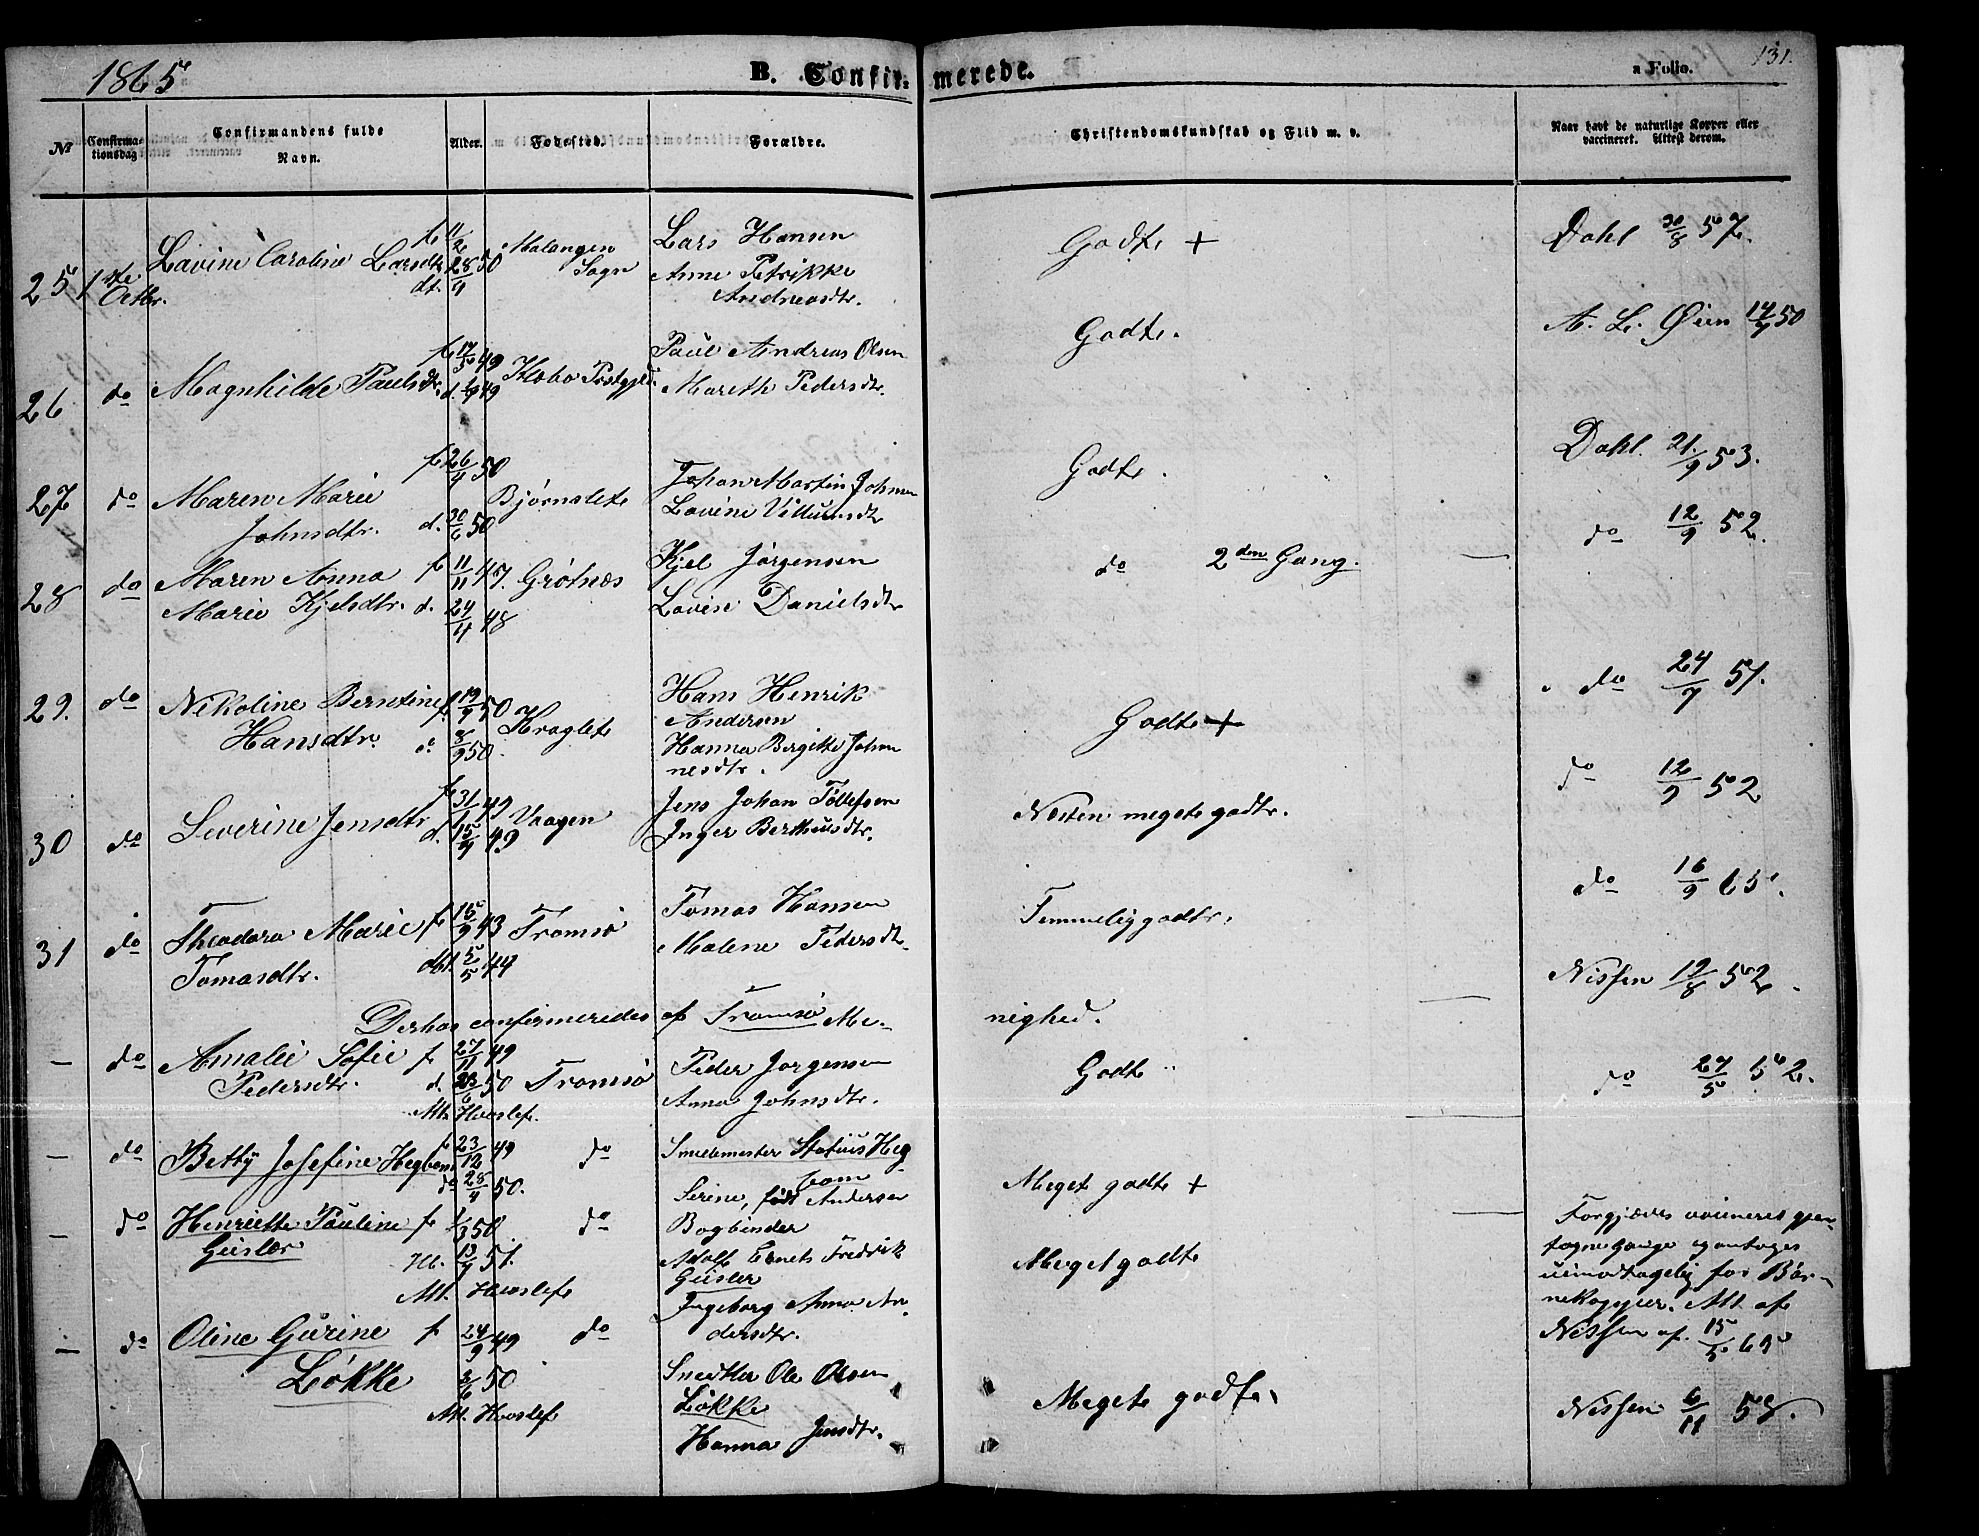 1865
B. Confirmerede.
a Folio. 131.
No Confirmationsdag Confirmandens fulde Navn. Alder. Fødested. Forældre. Christendomskundskab og Flid m. v. Naar havt de naturlige Kopper eller vaccineret. Attest derom.
25 1ste Octbr. Lavine Caroline Larsdtr f. 11/2 50 dt. 28/4 Malangen Sogn
Lars Hansen
Anne Petrikke
Andreasdtr.
Godt + Dahl 30/8 57.
26 do Magnhilde Paulsdtr. f. 17/5 49 d. 1/9 49 Klæbo Prstgjld.
Paul Andreas Olsen
Mareth Pedersdtr.
Godt. A. L. Øien 14/7 50
27 do Maren Marie f. 26/4 50 Bjørnslet
Johnsdtr. d. 30/6 50
Johan Martin Johnsen
Lavine Villumsdtr
Godt. Dahl. 21/9 53.
28 do Maren Anna f. 11/11 47. Grøtnæs
Marie Kjelsdtr. d. 24/4 48
Kjel Jørgensen
Lovise Danielsdtr
do 2den Gang. do 12/9 52.
29. do Nikoline Berntine f. 19/7 50 Kraglet
Hansdtr. d. 8/9 50.
Hans Henrik
Andersen
Hanna Birgitte Johan
nesdtr.
Godt + do 24/7 51.
30 do Severine Jensdtr f. 31/1 49 d. 15/4 49 Vaagen
Jens Johan Tollefsen
Inger Berthusdtr.
Næsten meget godt. do 12/9 52
31 do Theodora Marie f. 16/9 43 Tromsø
Tomasdtr. dbt. 5/5 44
Tomas Hansen
Malene Pedersdtr.
Temmelig godt. do 16/9 65.
Derhos confirmeredes af Tromsø Me-
nighed.
Nissen 19/8 52.
— do Amalie Sofie f. 27/11 49
Pedersdtr. d. 23/6 50 Tromsø
Att. Hvoslef.
Peder Jørgensen
Anna Johnsdtr.
Godt do 27/5 52.
— do Betty Josefine Hegbom f. 23/12 49 do
do 28/4 50.
Smedemester Statius Heg
bom
Serine, født Andersen
Meget godt +
— do Henriette Pauline f. 1/3 50 do
Geisler H. 13/4 51.
Att. Hvoslef
Bogbinder
Adolf Ernets Fredrik
Geisler
Ingeborg Anna An
dersdtr.
Meget godt
Forgjæves
tagne Gange og antages
uimodtagelig for Bør-
nekopper. Att. af
Nissen af 15/5 65
— do Oline Gurine f. 24/9 49 do
Løkke 3/6 50
Att. Hvoslef
Snedker Ole Olsen
Løkke
Hanna Jensdtr.
Meget godt. Nissen 6/11 58.